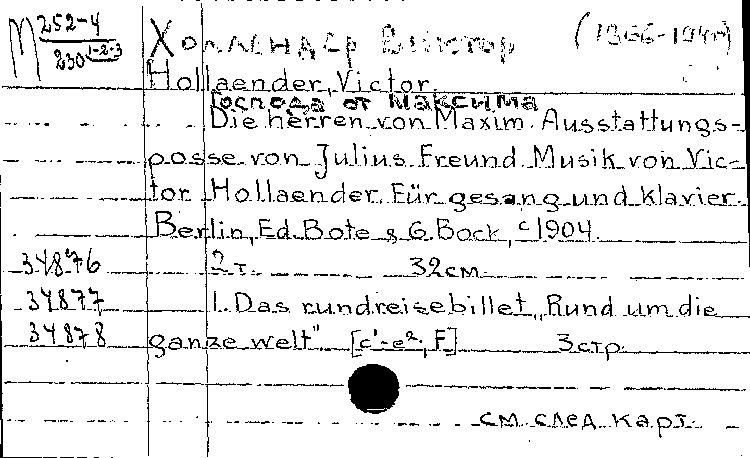 М 252-4
230 1-2-3
Холлендер Виктор (1866-1940)
Hollaender, Victor.
Господа от Максима
Die herren von Maxim. Ausstattungs-
posse von Julius Freund. Musik von Vic-
tor Hollaender. Für gesang und klavier.
Berlin, Ed. Bote & G. Bock, c1904.
34876 2 т. 32 см.
34877 1. Das rundreisebillet „Rund um die
34878 ganze welt" [c'-e², F] 3 стр.
см. след. карт.